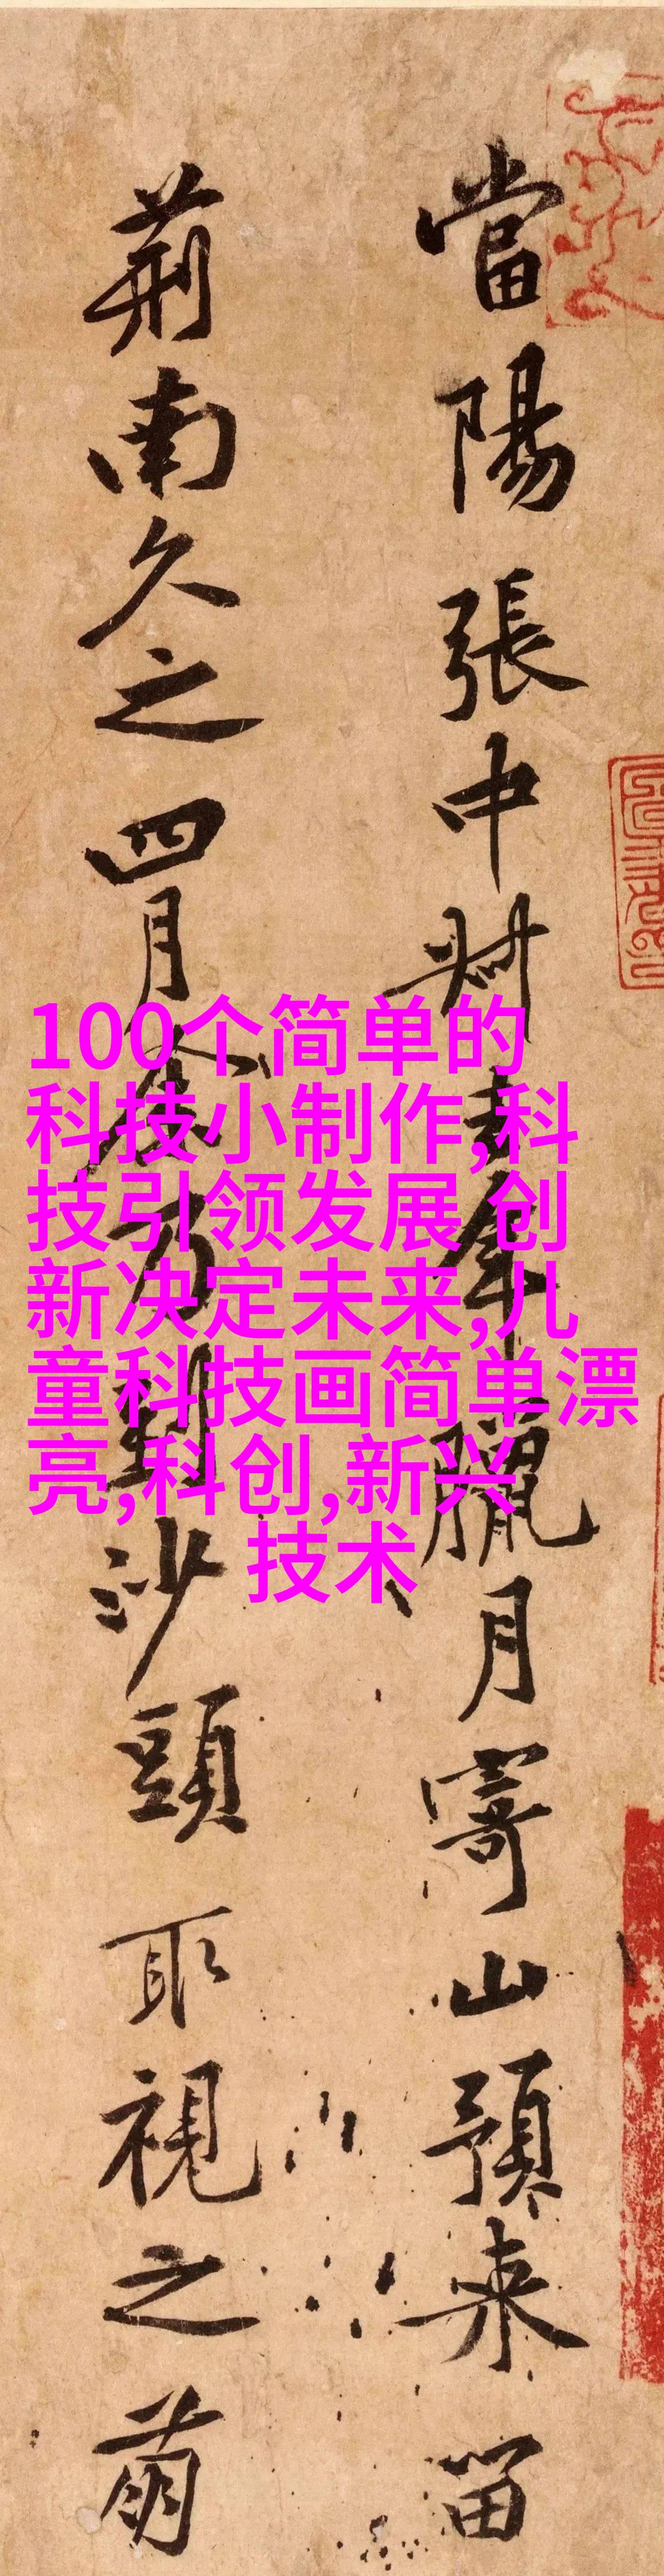 當陽張中叔去年臘月寄山預来留
荊南久之四月余乃到沙頭取視之萌
100个简单的
科技小制作,科
技引领发展 创
新决定未来,儿
童科技画简单漂
亮,科创,新兴
技术